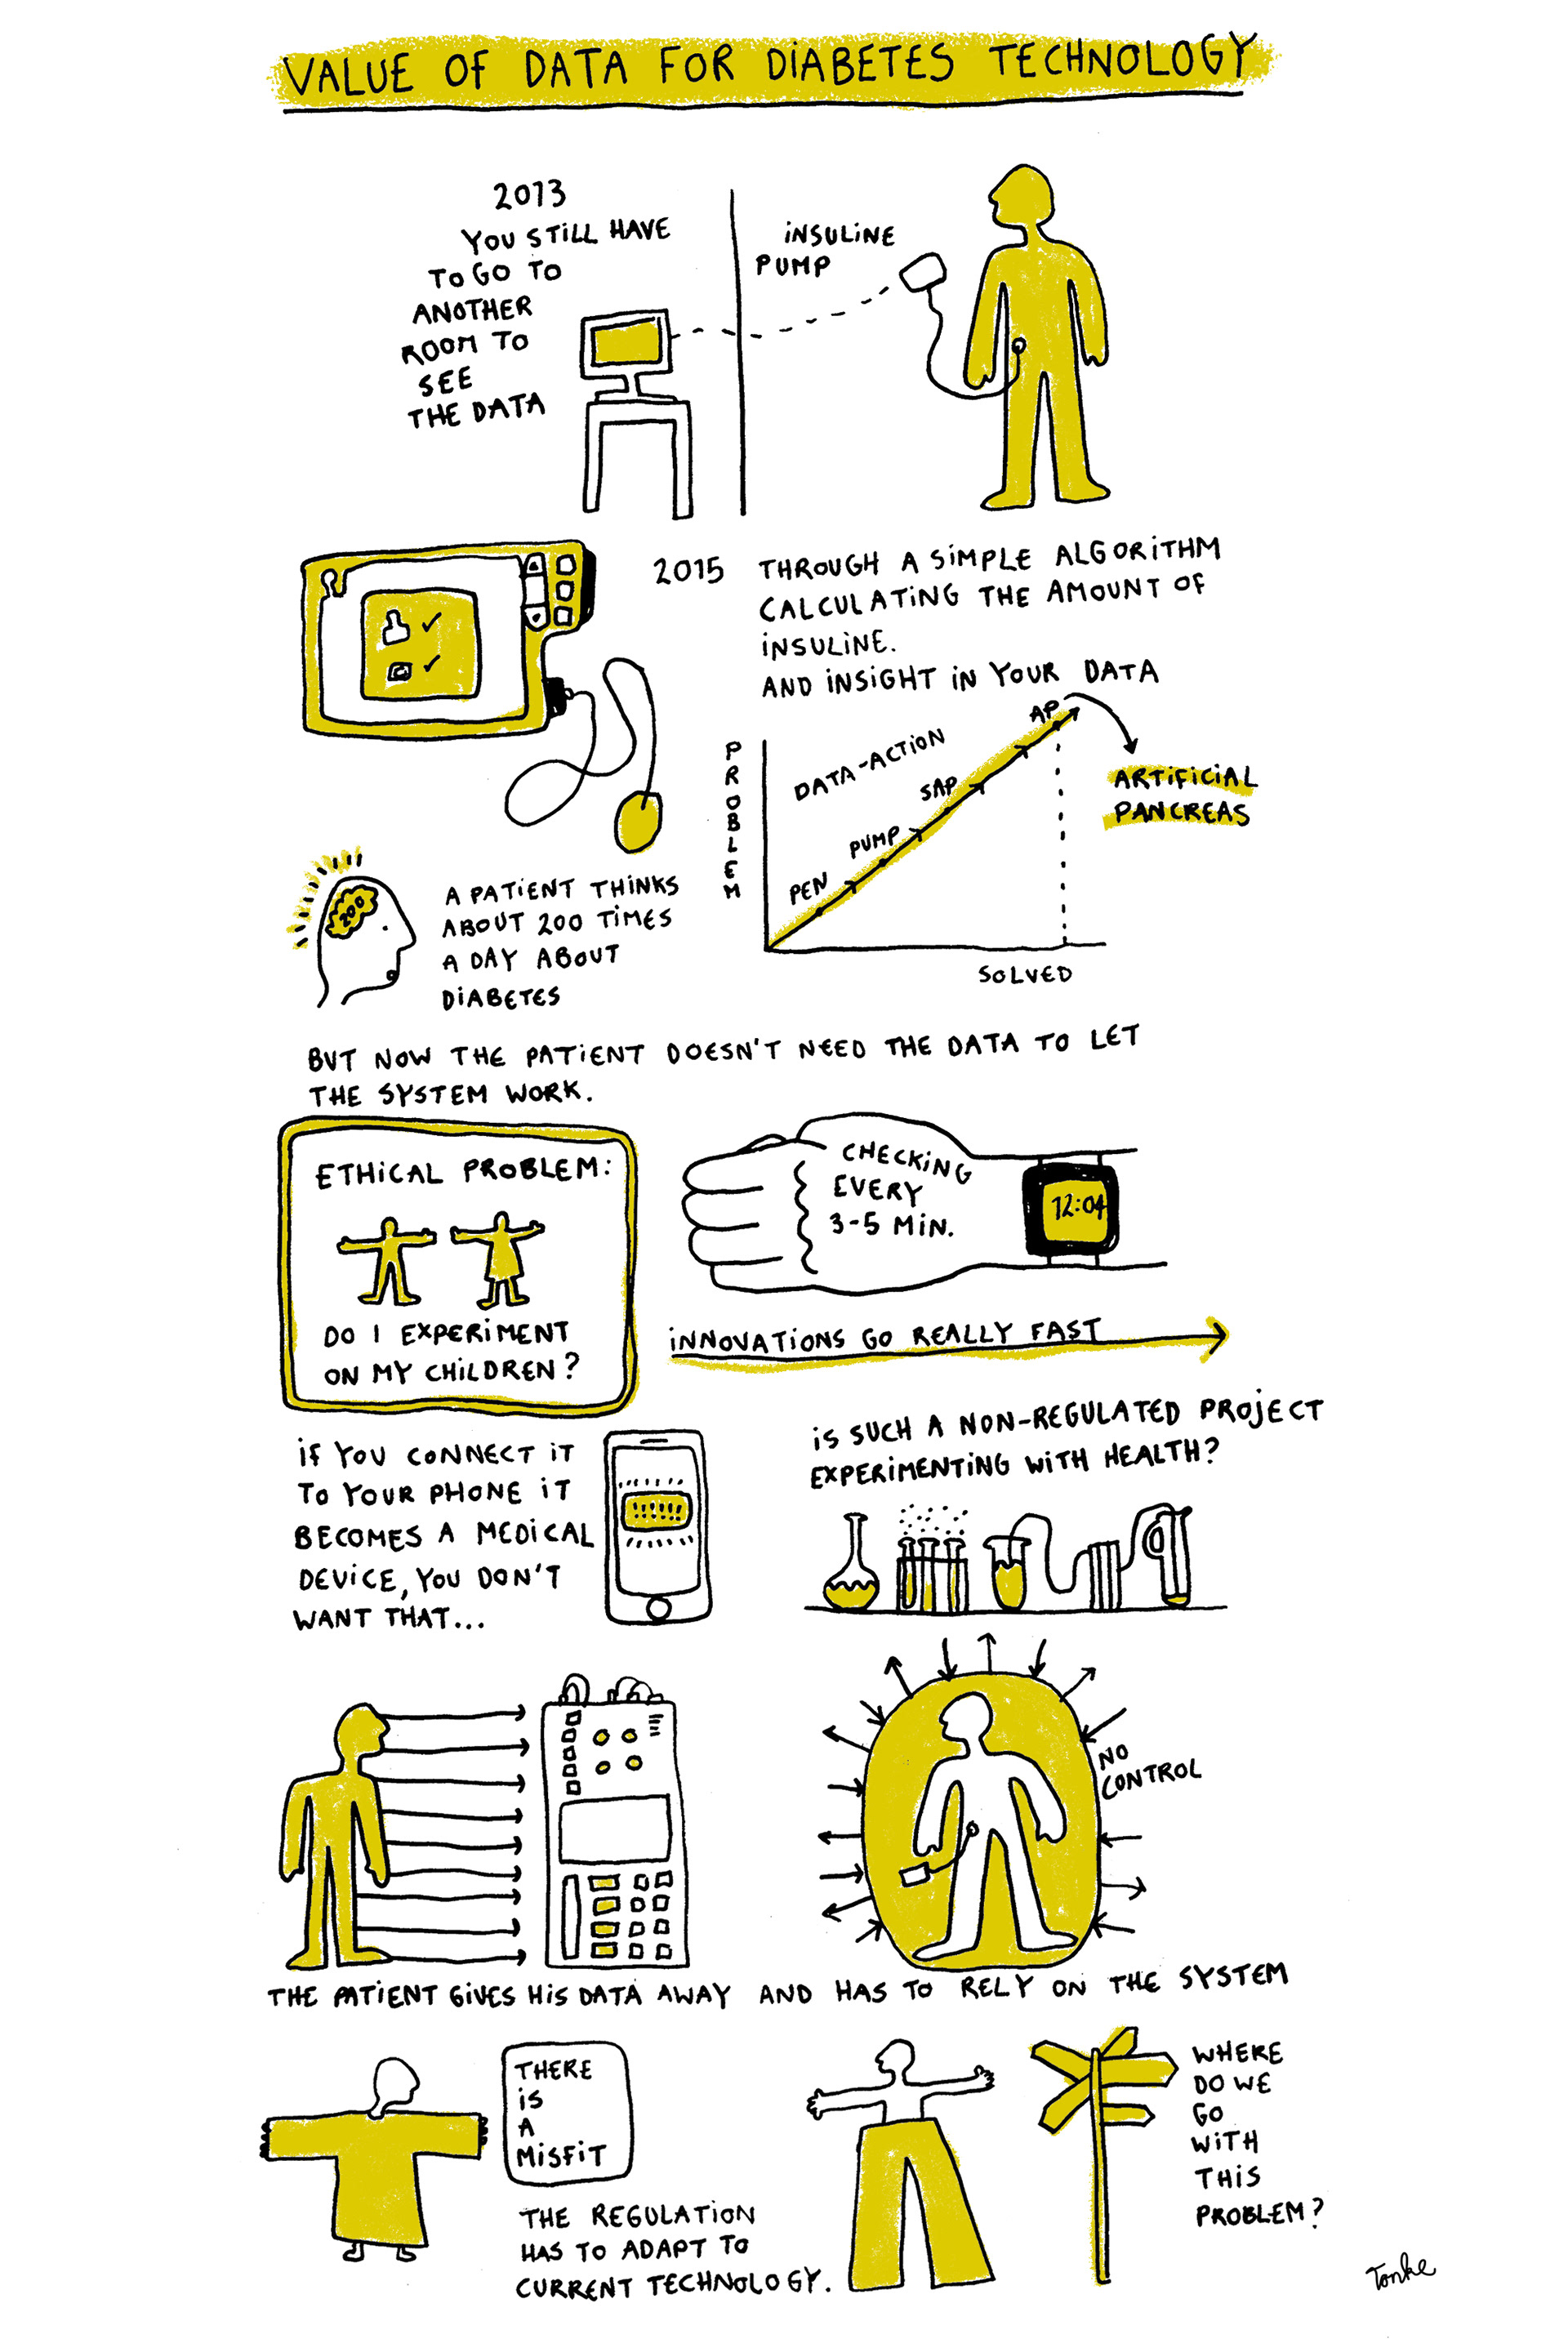 VALUE OF DATA FOR DIABETES TECHNOLOGY
2013
YOU STILL HAVE
TO GO TO
ANOTHER
ROOM TO
SEE
THE DATA
INSULINE
PUMP
2015 THROUGH A SIMPLE ALGORITHM
CALCULATING THE AMOUNT OF
INSULINE.
AND INSIGHT IN YOUR DATA
PROBLEM
DATA-ACTION
PEN
PUMP
SAP
AP
ARTIFICIAL
PANCREAS
SOLVED
200
A PATIENT THINKS
ABOUT 200 TIMES
A DAY ABOUT
DIABETES
BUT NOW THE PATIENT DOESN'T NEED THE DATA TO LET
THE SYSTEM WORK.
ETHICAL PROBLEM:
DO I EXPERIMENT
ON MY CHILDREN?
CHECKING
EVERY
3-5 MIN.
12:04
INNOVATIONS GO REALLY FAST
IF YOU CONNECT IT
TO YOUR PHONE IT
BECOMES A MEDICAL
DEVICE, YOU DON'T
WANT THAT...
IS SUCH A NON-REGULATED PROJECT
EXPERIMENTING WITH HEALTH?
NO
CONTROL
THE PATIENT GIVES HIS DATA AWAY AND HAS TO RELY ON THE SYSTEM
THERE
IS
A
MISFIT
THE REGULATION
HAS TO ADAPT TO
CURRENT TECHNOLOGY.
WHERE
DO WE
GO
WITH
THIS
PROBLEM?
Tonke